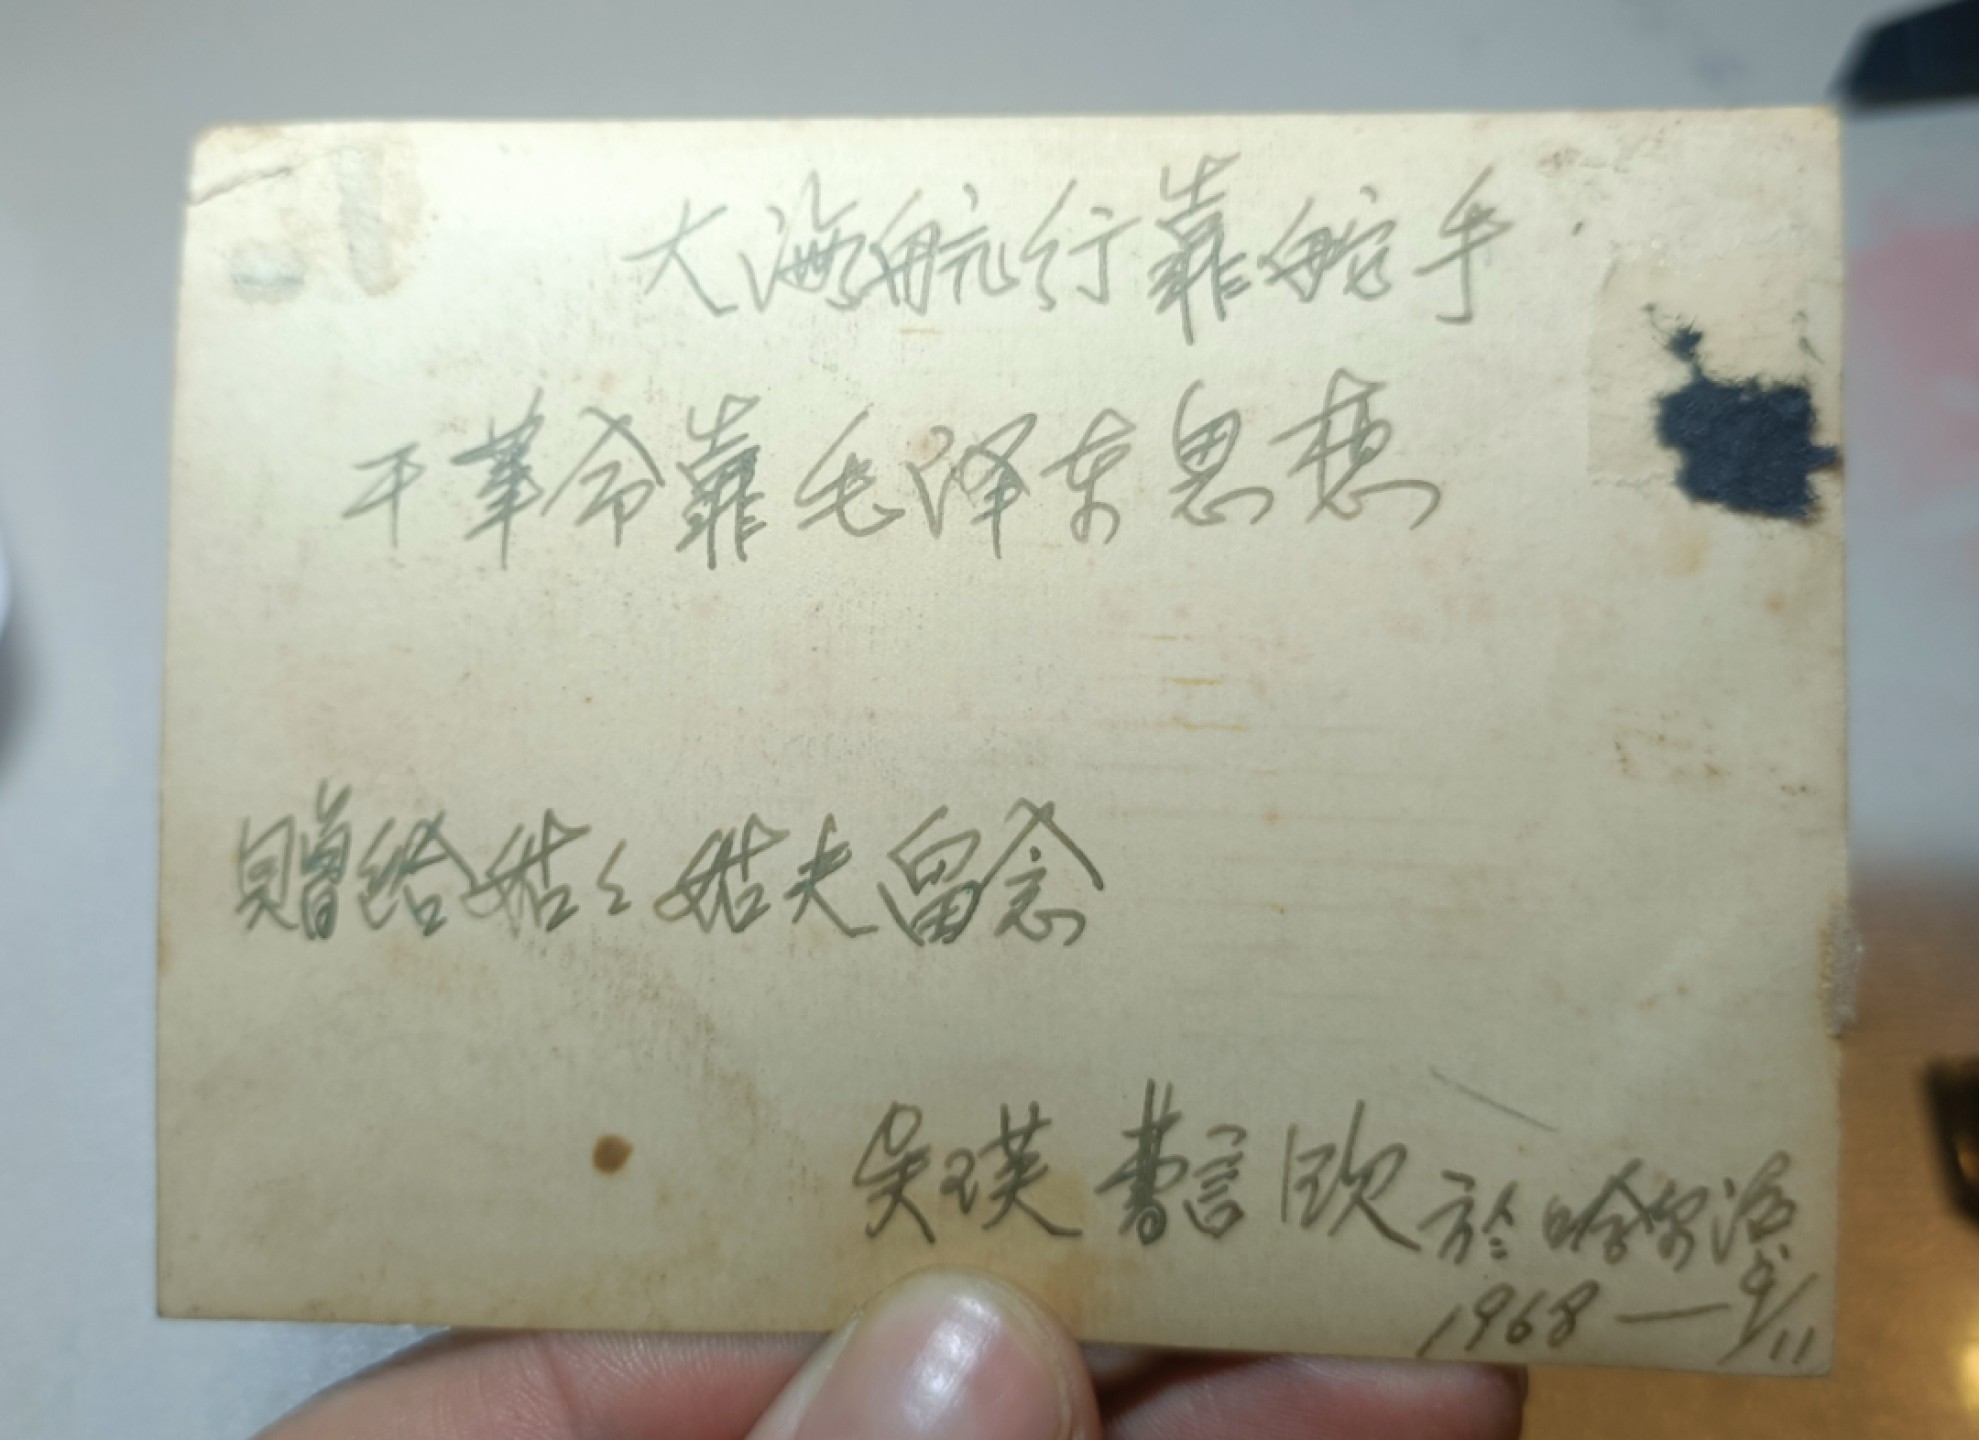 大海航行靠舵手
干革命靠毛泽东思想
赠给姑々姑夫留念
吴瑛 書言 欣 於哈尔滨
1968—9/11